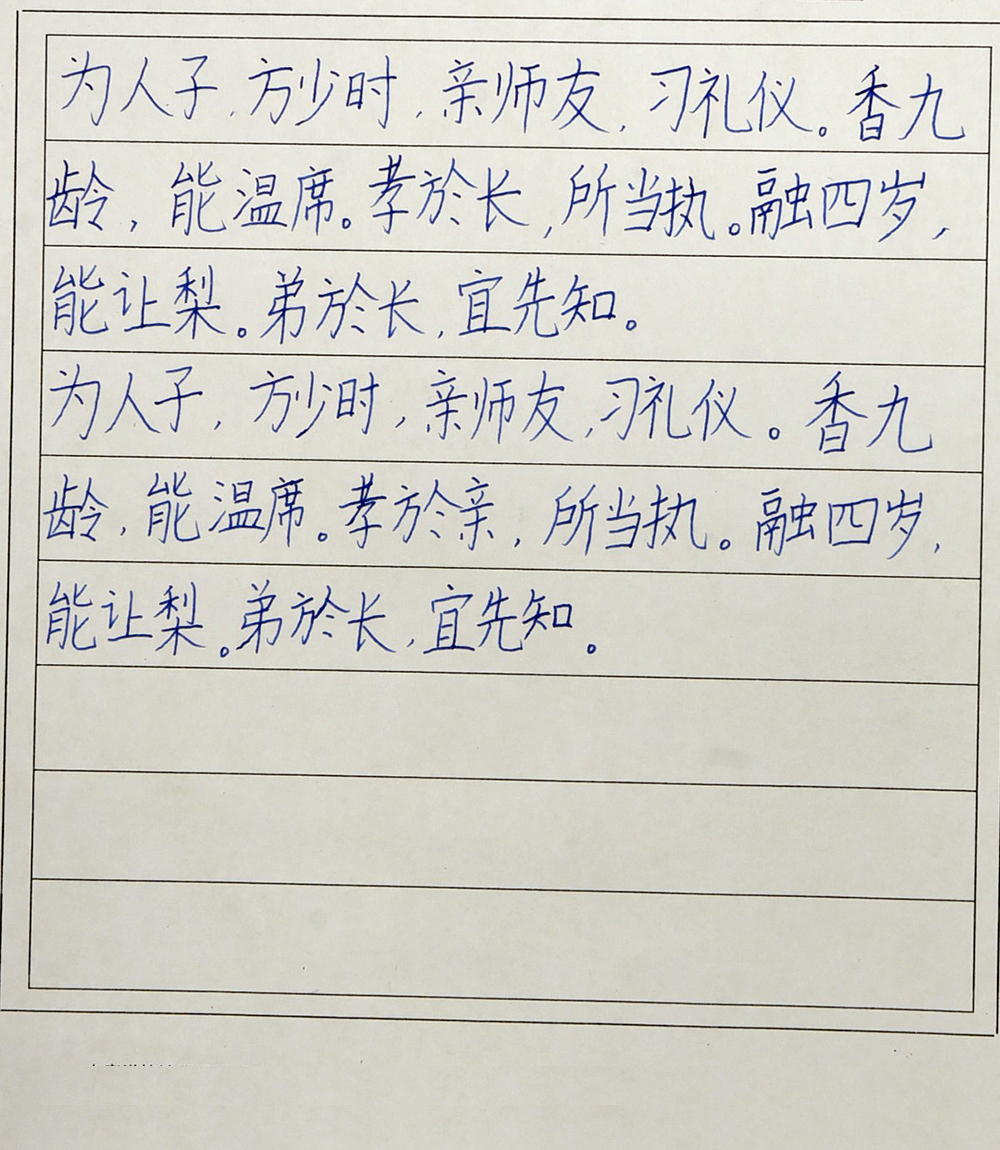 为人子,方少时,亲师友,习礼仪。香九
龄,能温席。孝於长,所当执。融四岁,
能让梨。弟於长,宜先知。
为人子,方少时,亲师友,习礼仪。香九
龄,能温席。孝於亲,所当执。融四岁,
能让梨。弟於长,宜先知。